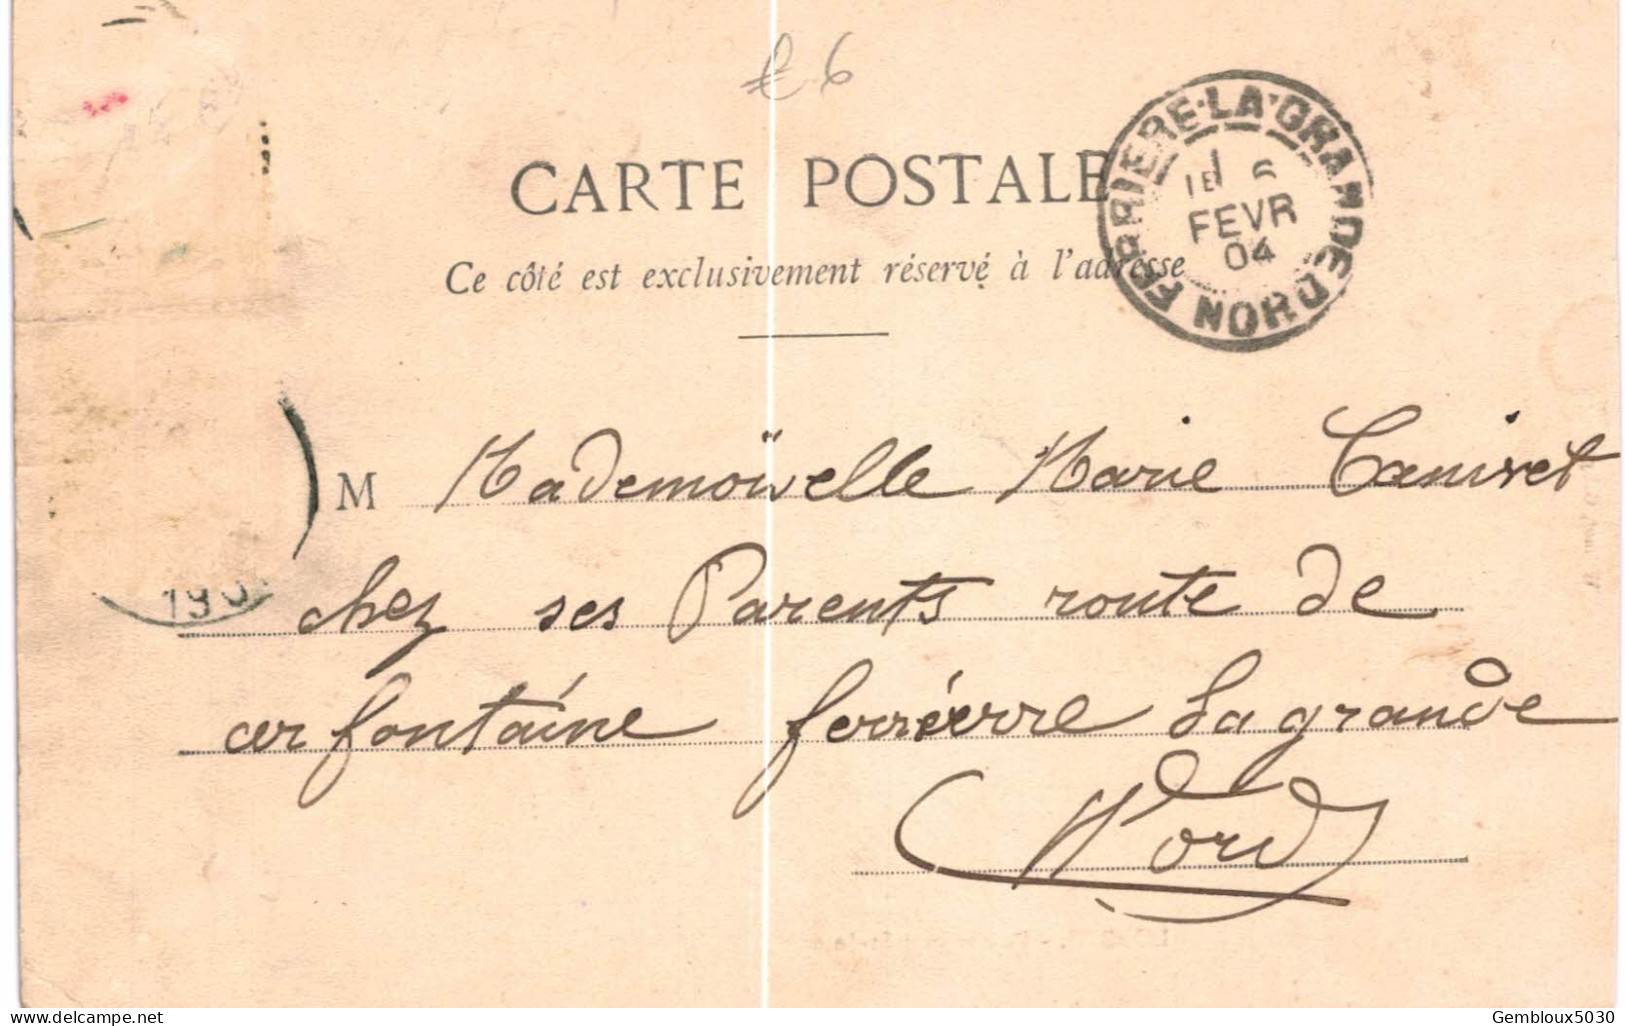 € 6
CARTE POSTALE
Ce côté est exclusivement réservé à l'adresse
FERRIERE-LA-GRANDE NORD
6
FEVR
04
M Mademoïselle Marie Canivet
chez ses Parents route de
cerfontaine ferrière la grande
Nord
190
delcampe.net
Gembloux5030